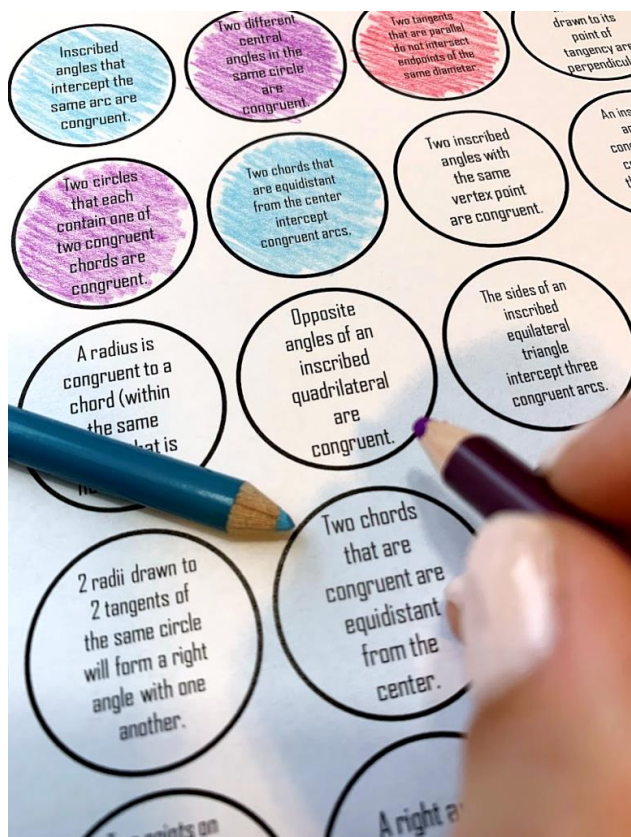 Inscribed
angles that
intercept the
same arc are
congruent.
Two different
central
angles in the
same circle
are
congruent.
Two tangents
that are parallel
do not intersect
endpoints of the
same diameter.
drawn to its
point of
tangency are
perpendicul
Two circles
that each
contain one of
two congruent
chords are
congruent.
Two chords that
are equidistant
from the center
intercept
congruent arcs.
Two inscribed
angles with
the same
vertex point
are congruent.
An ins
A radius is
congruent to a
chord (within
the same
hat is
Opposite
angles of an
inscribed
quadrilateral
are
congruent.
The sides of an
inscribed
equilateral
triangle
intercept three
congruent arcs.
2 radii drawn to
2 tangents of
the same circle
will form a right
angle with one
another.
Two chords
that are
congruent are
equidistant
from the
center.
points on
A right a